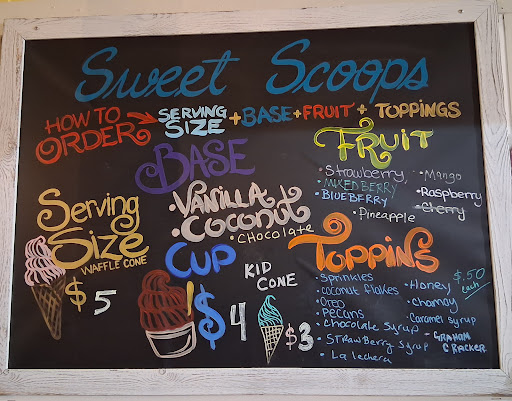 Sweet Scoops
HOW TO ORDER → SERVING SIZE + BASE + FRUIT + TOPPINGS
BASE
• VANILLA
• Coconut
• CHocolate
FRUIT
• Strawberry
• MIXED BERRY
• BLUEBERRY
• Pineapple
• Mango
• Raspberry
• Cherry
Serving Size
WAFFLE CONE
$5
CUP
$4
KID CONE
$3
TOPPINS
$.50 each
• Sprinkles
• coconut flakes
• OREO
• Pecans
• chocolate syrup
• STRAWBerry syrup
• La lechera
• Honey
• chamoy
• Caramel syrup
• GRAHAM CRACKER